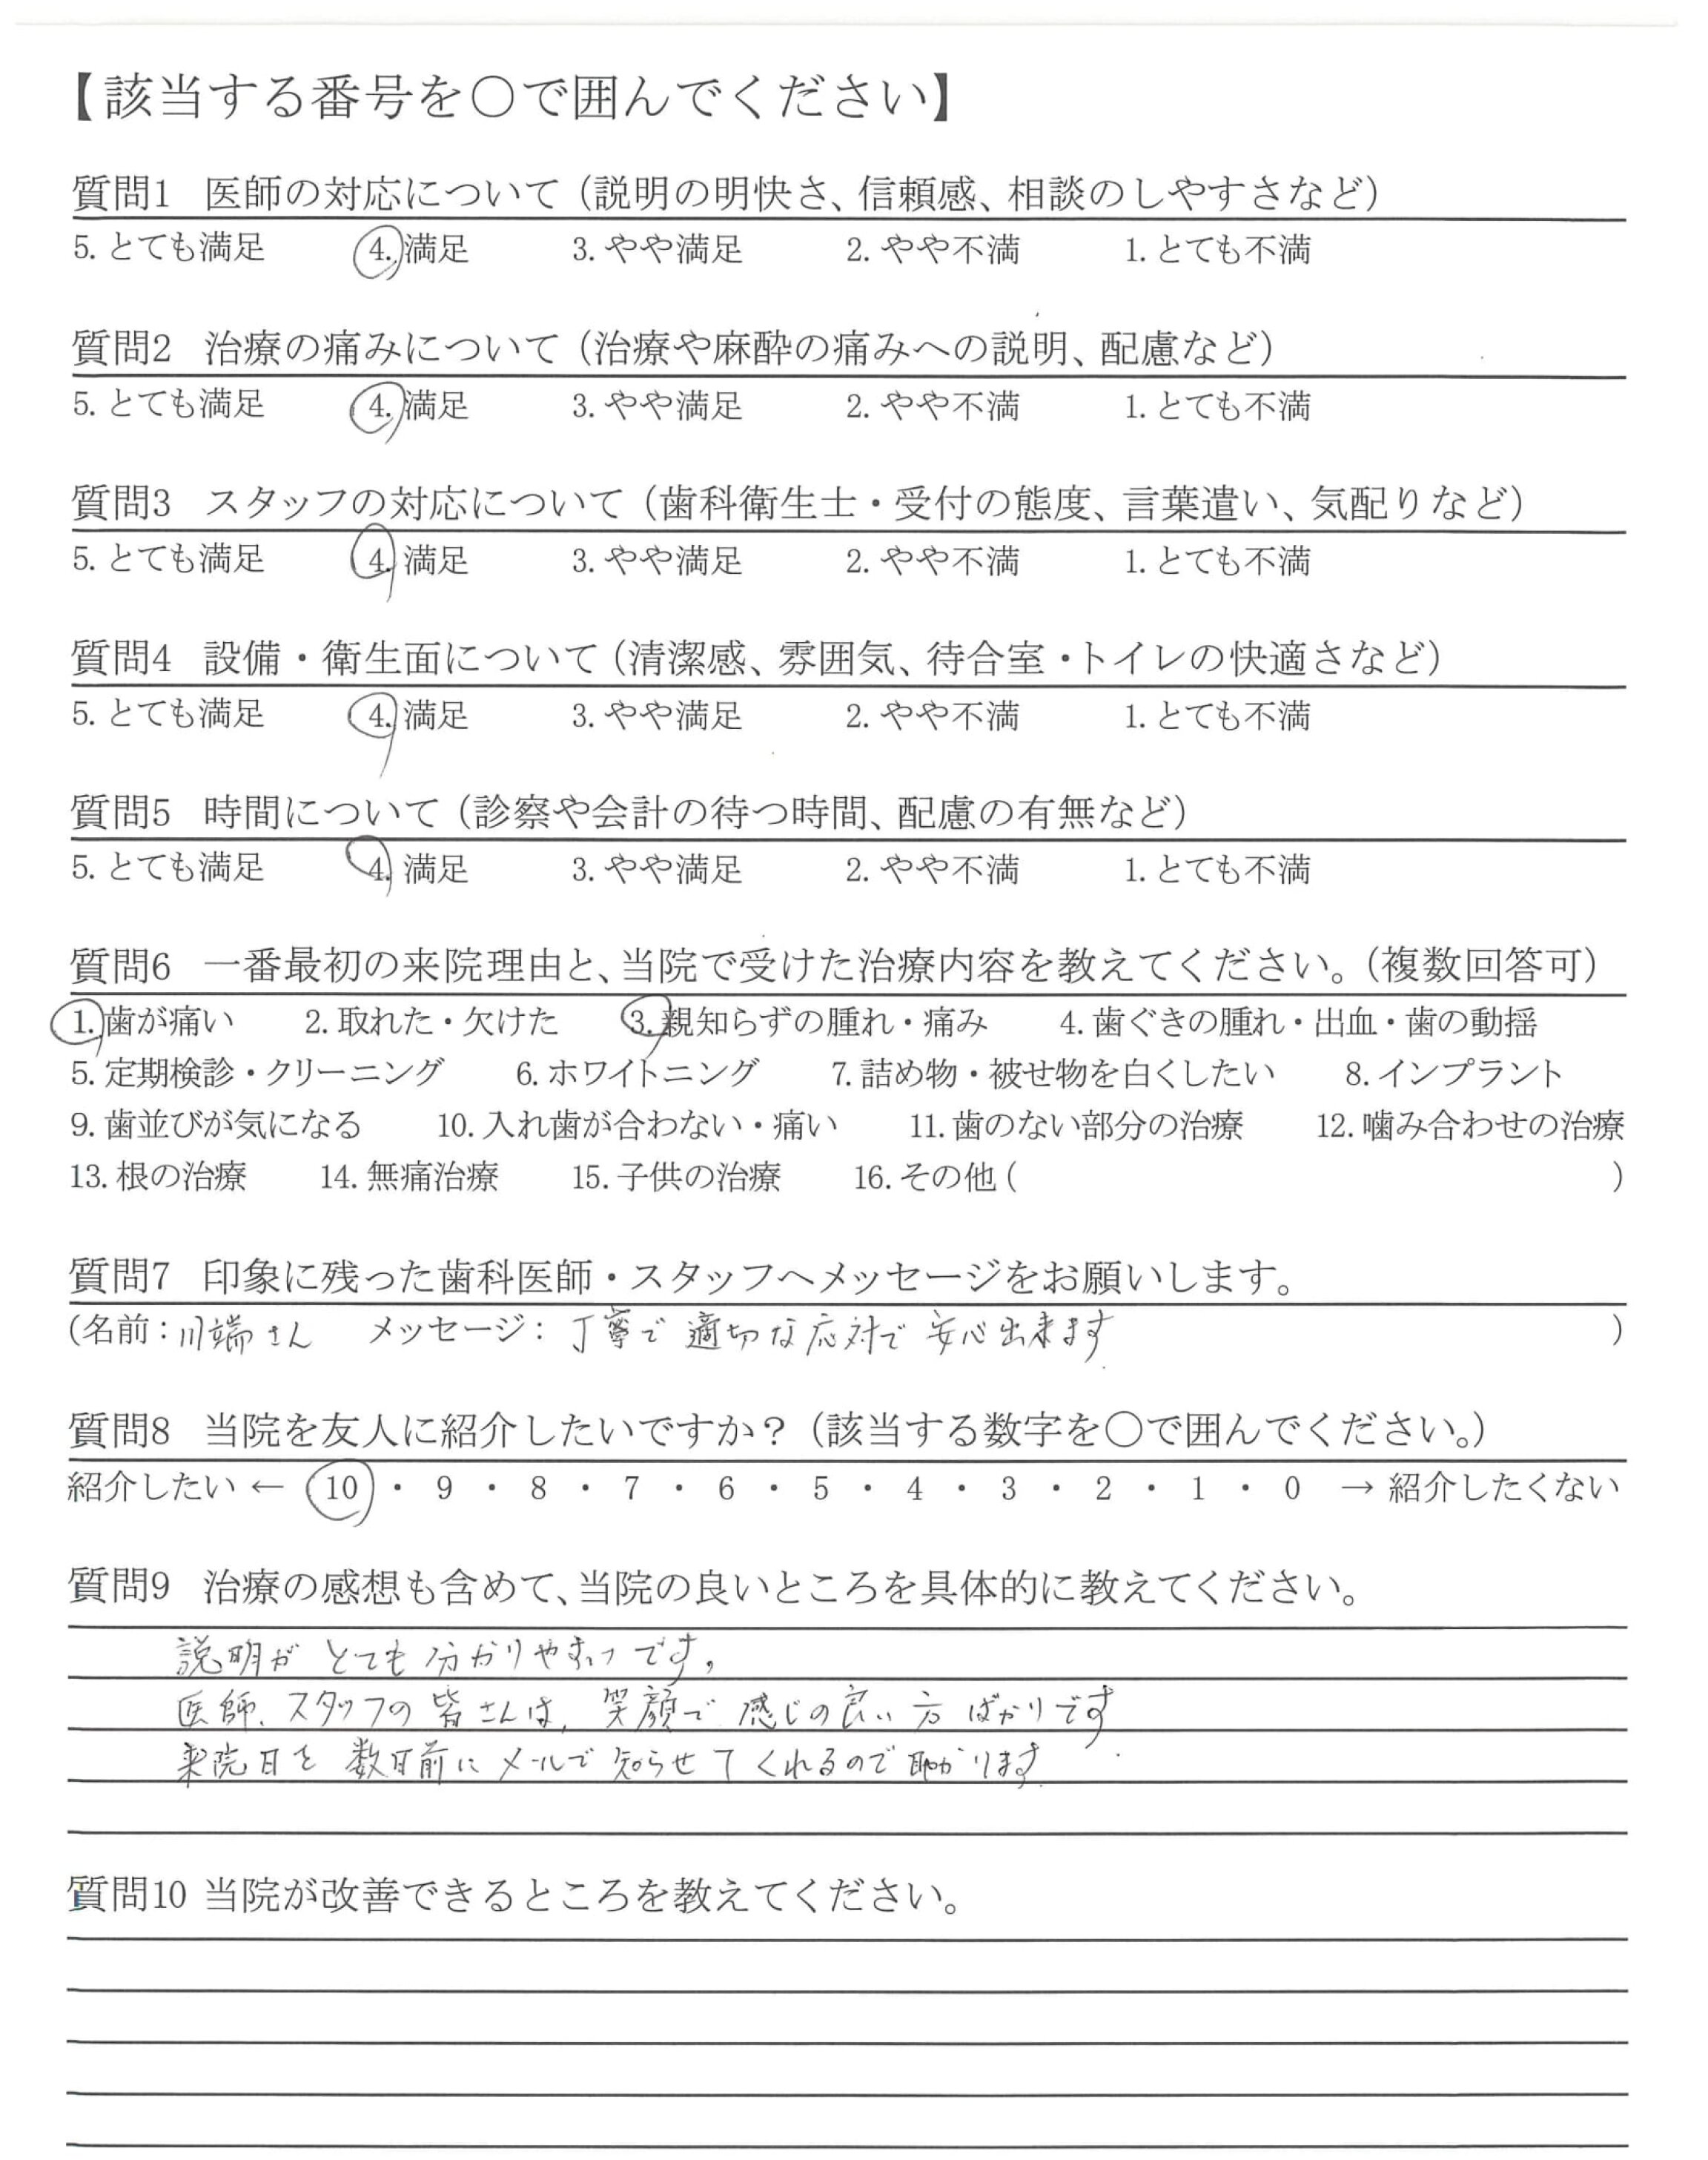 【該当する番号を○で囲んでください】
質問1 医師の対応について（説明の明快さ、信頼感、相談のしやすさなど）
5. とても満足 4. 満足 3. やや満足 2. やや不満 1. とても不満
質問2 治療の痛みについて（治療や麻酔の痛みへの説明、配慮など）
5. とても満足 4. 満足 3. やや満足 2. やや不満 1. とても不満
質問3 スタッフの対応について（歯科衛生士・受付の態度、言葉遣い、気配りなど）
5. とても満足 4. 満足 3. やや満足 2. やや不満 1. とても不満
質問4 設備・衛生面について（清潔感、雰囲気、待合室・トイレの快適さなど）
5. とても満足 4. 満足 3. やや満足 2. やや不満 1. とても不満
質問5 時間について（診察や会計の待つ時間、配慮の有無など）
5. とても満足 4. 満足 3. やや満足 2. やや不満 1. とても不満
質問6 一番最初の来院理由と、当院で受けた治療内容を教えてください。（複数回答可）
1. 歯が痛い 2. 取れた・欠けた 3. 親知らずの腫れ・痛み 4. 歯ぐきの腫れ・出血・歯の動揺
5. 定期検診・クリーニング 6. ホワイトニング 7. 詰め物・被せ物を白くしたい 8. インプラント
9. 歯並びが気になる 10. 入れ歯が合わない・痛い 11. 歯のない部分の治療 12. 噛み合わせの治療
13. 根の治療 14. 無痛治療 15. 子供の治療 16. その他（ ）
質問7 印象に残った歯科医師・スタッフへメッセージをお願いします。
（名前：川端さん メッセージ：丁寧で適切な応対で安心出来ます ）
質問8 当院を友人に紹介したいですか？（該当する数字を○で囲んでください。）
紹介したい ← 10 ・ 9 ・ 8 ・ 7 ・ 6 ・ 5 ・ 4 ・ 3 ・ 2 ・ 1 ・ 0 → 紹介したくない
質問9 治療の感想も含めて、当院の良いところを具体的に教えてください。
説明がとても分かりやすいです。
医師、スタッフの皆さんは、笑顔で感じの良い方ばかりです
来院日を数日前にメールで知らせてくれるので助かります
質問10 当院が改善できるところを教えてください。